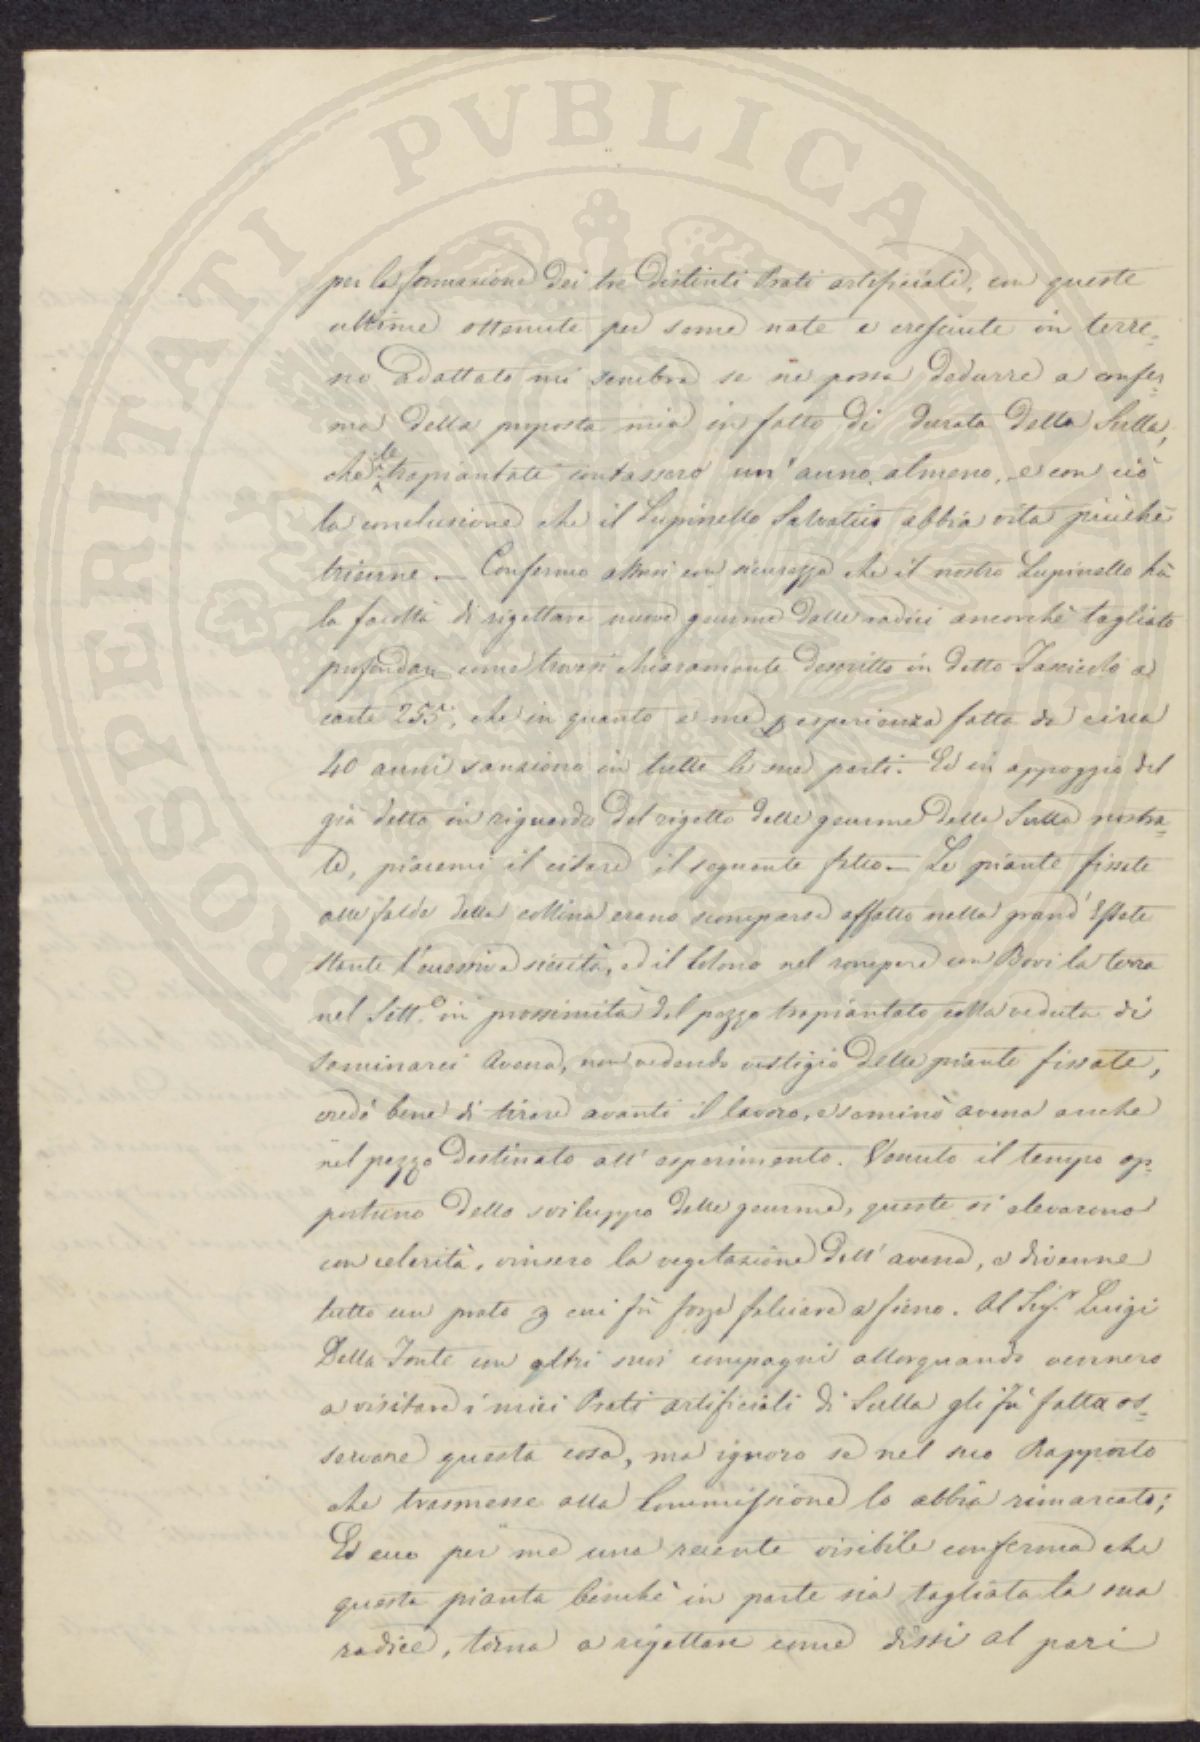 per la formazione dei tre distinti Prati artificiali, con queste
ultime ottenute per seme nate e cresciute in terre=
no adattato mi sembra se ne possa dedurre a confer=
ma della proposta mia in fatto di durata della Sulla,
che le trapiantate contassero un' anno almeno, e con ciò
la conclusione che il Lupinello Salvatico abbia vita più che
trienne. — Confermo altresì con sicurezza che il nostro Lupinello ha
la facoltà di rigettare nuove gemme dalle radici ancorchè tagliate
profondam. come trovasi chiaramente descritto in detto Fascicolo a
carte 255, che in quanto a me p esperienza fatta da circa
40 anni sanziono in tutte le sue parti. Ed in appoggio del
già detto in riguardo del rigetto delle gemme della Sulla nostra=
le, piacemi il citare il seguente fatto — Le piante fissate
alle falde della collina erano scomparse affatto nella grand' Estate
stante l'eccessiva siccità, ed il Colono nel rompere con Bovi la terra
nel Sett.e in prossimità del pezzo trapiantato colla veduta di
seminarci Avena, non vedendo vestigio delle piante fissate,
credè bene di tirare avanti il lavoro, e seminò avena anche
nel pezzo destinato all' esperimento. Venuto il tempo op=
portuno dello sviluppo delle gemme, queste si elevarono
con celerità, vinsero la vegetazione dell' avena, e divenne
tutto un prato p cui fù forza falciare a fieno. Al Sig.r Luigi
Della Fonte con altri suoi compagni allorquando vennero
a visitare i miei Prati artificiali di Sulla gli fù fatta os=
servare questa cosa, ma ignoro se nel suo Rapporto
che trasmesse alla Commissione lo abbia rimarcato;
Ed ecco per me una recente visibile conferma che
questa pianta benchè in parte sia tagliata la sua
radice, torna a rigettare come dissi al pari
PROSPERITATI PUBLICAE